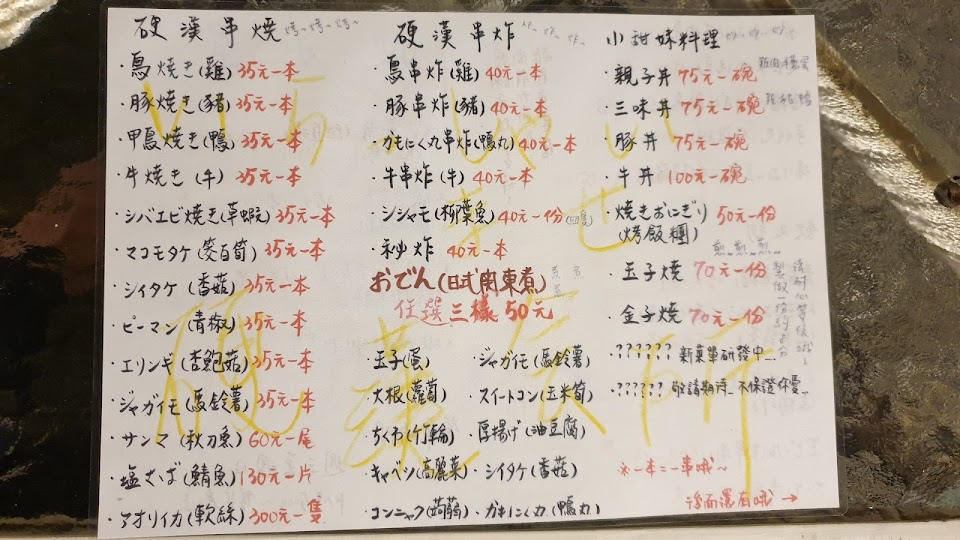 硬漢串燒 烤~烤~烤~
・鳥焼き(雞) 35元一本
・豚焼き(豬) 35元一本
・甲鳥焼き(鴨) 35元一本
・牛焼き(牛) 35元一本
・シバエビ焼き(草蝦) 35元一本
・マコモタケ(筊白筍) 35元一本
・シイタケ(香菇) 35元一本
・ピーマン(青椒) 35元一本
・エリンギ(杏鮑菇) 35元一本
・ジャガイモ(馬鈴薯) 35元一本
・サンマ(秋刀魚) 60元一尾
・塩さば(鯖魚) 130元一片
・アオリイカ(軟絲) 300元一隻
硬漢串炸 炸~炸~炸~
・鳥串炸(雞) 40元一本
・豚串炸(豬) 40元一本
・カモにく丸串炸(鴨丸) 40元一本
・牛串炸(牛) 40元一本
・シシャモ(柳葉魚) 40元一份
・ネ炒炸 40元一本
おでん(日式関東煮)
任選三樣50元
・玉子(蛋) ・ジャガイモ(馬鈴薯)
・大根(蘿蔔) ・スイートコン(玉米筍)
・ちくわ(竹輪) ・厚揚げ(油豆腐)
・キャベツ(高麗菜) ・シイタケ(香菇)
・コンニャク(蒟蒻) ・ガモにく丸(鴨丸)
小甜妹料理
・親子丼 75元一碗
・三味丼 75元一碗
・豚丼 75元一碗
・牛丼 100元一碗
・焼きおにぎり 50元一份
(烤飯糰)
煎~煎~煎~
・玉子焼 70元一份
・金子焼 70元一份
・?????? 新菜單研發中...
・?????? 敬請期待... 不保證休憂...
※一本=一串哦~
後面還有哦→